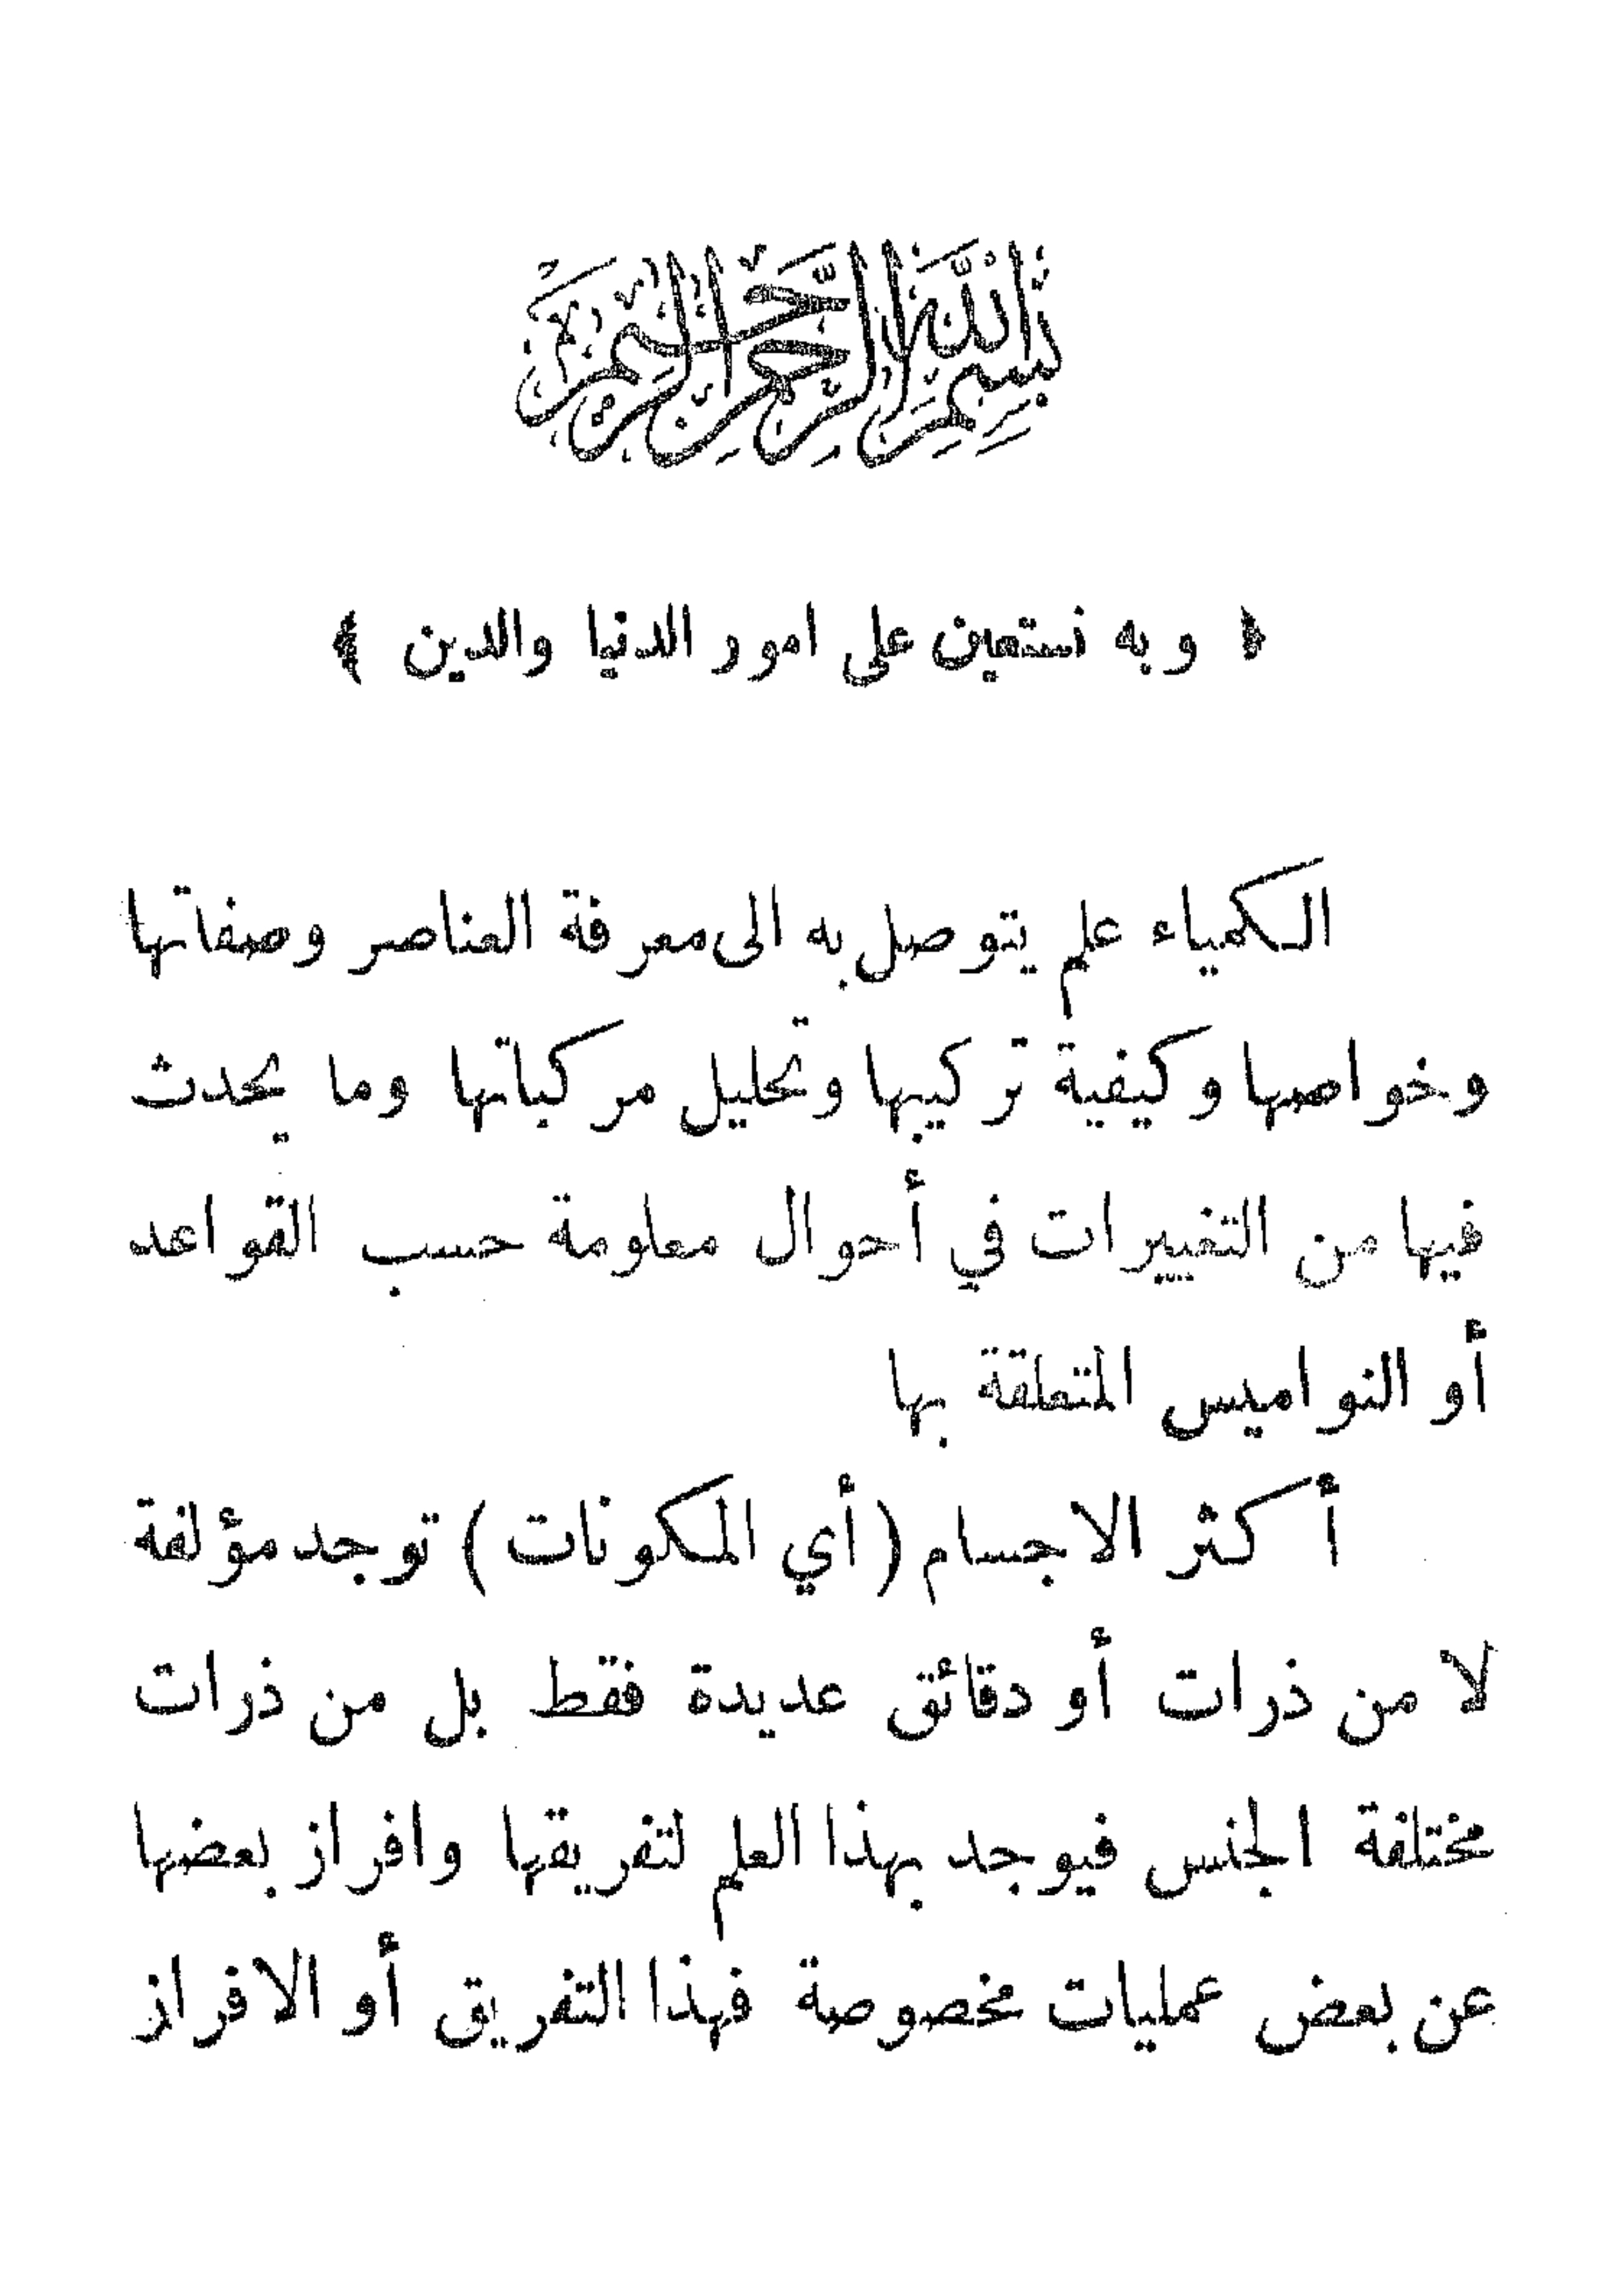 بسم الله الرحمن الرحيم
﴿ وبه نستعين على امور الدنيا والدين ﴾
الكمياء علم يتوصل به الى معرفة العناصر وصفاتها
وخواصها وكيفية تركيبها وتحليل مركباتها وما يحدث
فيها من التغييرات في أحوال معلومة حسب القواعد
أو النواميس المتعلقة بها
أكثر الاجسام (أي المكونات) توجد مؤلفة
لا من ذرات أو دقائق عديدة فقط بل من ذرات
مختلفة الجنس فيوجد بهذا العلم لتفريقها وافراز بعضها
عن بعض عمليات مخصوصة فهذا التفريق أو الافراز